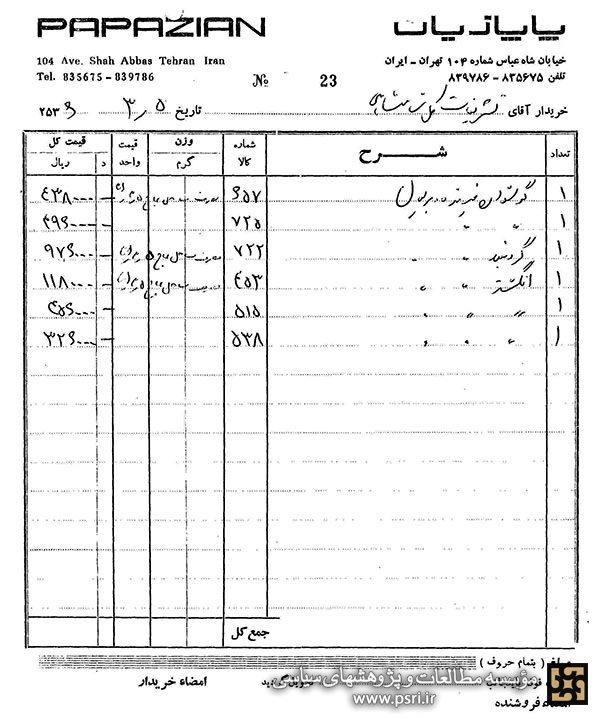 PAPAZIAN پاپازیان
104 Ave. Shah Abbas Tehran Iran خیابان شاه عباس شماره ۱۰۴ تهران - ایران
Tel. 835675 - 839786 № 23 تلفن ۸۳۵۶۷۵ - ۸۳۹۷۸۶
خریدار آقای تشریفات کل تاریخ ۵ ر ۳ ۲۵۳۶
تعداد شرح شماره کالا وزن گرم قیمت واحد قیمت کل د ریال
۱ گوشواره ۶۵۷ ۴۳۸۰۰۰ -
۱ " " ۷۲۵ ۴۹۶۰۰۰ -
۱ گردنبند " " ۷۲۲ ۹۷۶۰۰۰ -
۱ انگشتر " " ۴۵۳ ۱۱۸۰۰۰ -
۱ " " " ۵۱۵ ۴۵۶۰۰۰ -
۱ " " " ۵۳۸ ۳۲۶۰۰۰ -
جمع کل
مبلغ ( بتمام حروف )
امضاء خریدار
امضاء فروشنده
مؤسسه مطالعات و پژوهشهای سیاسی
www.psri.ir